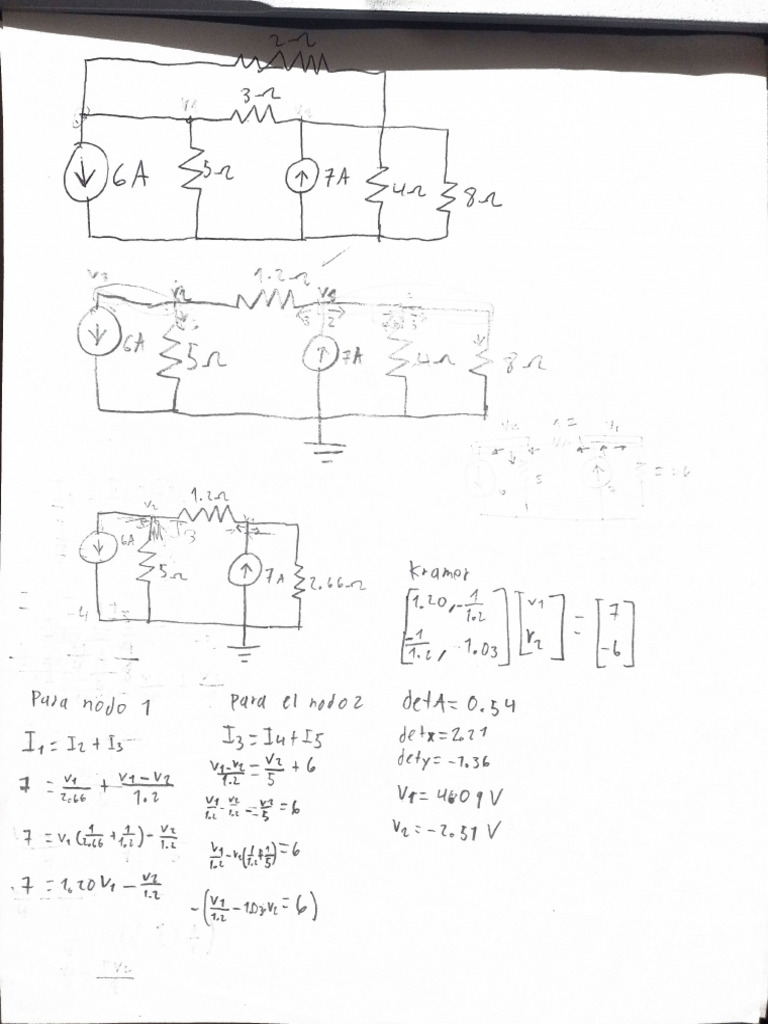 2Ω
3Ω
6A
5Ω
7A
4Ω
8Ω
V3
V2
1.2Ω
6A
5Ω
7A
4Ω
8Ω
V2
1.2Ω
6A
I3
5Ω
7A
2.66Ω
Kramer
[1.20, -1/1.2] [V1] = [7]
[-1/1.2, 1.03] [V2] [-6]
Para nodo 1
I1 = I2 + I3
7 = V1/2.66 + V1-V2/1.2
7 = V1(1/2.66 + 1/1.2) - V2/1.2
7 = 1.20V1 - V2/1.2
Para el nodo 2
I3 = I4 + I5
V1-V2/1.2 = V2/5 + 6
V1/1.2 - V2/1.2 - V2/5 = 6
V1/1.2 - V2(1/1.2 + 1/5) = 6
-(V1/1.2 - 1.03V2 = 6)
detA = 0.54
detx = 2.21
dety = -1.36
V2 = -2.51 V